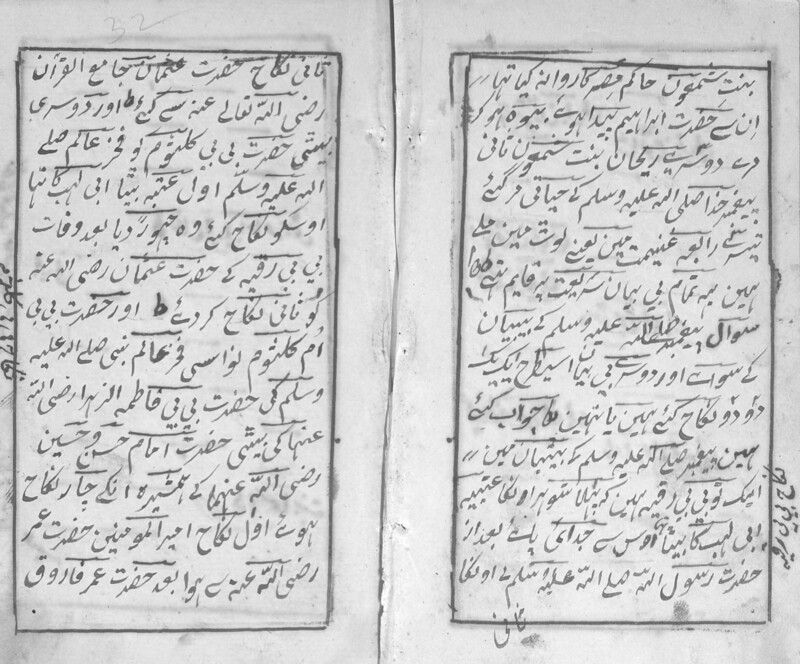 بنت شمعون حاکم مصر کا روانہ کیا تہا
اِن سے حضرت ابراہیم پیدا ہوے بیوہ ہو کر
مرے دوسرے ریحان بنت شمعون ثانی
پیغمبر خدا صلی اللہ علیہ وسلم کے حیاتی مر گئے
تیسرے رابعہ غنیمت مین یعنے لوٹ مین ملے
ہین یہ تمام بی بیان شریعت پر قایم تہے
سوال پیغمبر صلی اللہ علیہ وسلم کے بیبیان
کے سواے اور دوسرے بی بیان اسیطرح ایک ایک
دو دو نکاح کئے ہین یا نہین جواب کئے
ہین پیغمبر صلے اللہ علیہ وسلم کے بیٹیان مین
ایک تو بی بی رقیہ ہین کہ پہلا شوہر اونکا عتبیہ
ابی لہب کا بیٹا تہا اوس سے جدائی پائے بعد از
حضرت رسول اللہ صلے اللہ علیہ وسلم نے اونکا
ثانی
نکاح بی بی رقیہ
32
ثانی نکاح حضرت عثمان جامع القرآن
رضی اللہ تعالے عنہ سے کئے اور دوسری
بیٹی حضرت بی بی کلثوم کو فخر عالم صلے
اللہ علیہ وسلم اول عتبہ بیٹا ابی لہب کا تہا
اوسکو نکاح کئے وہ چہوڑ دیا بعد وفات
بی بی رقیہ کے حضرت عثمان رضی اللہ عنہ
کو ثانی نکاح کر دئے اور حضرت بی بی
اُم کلثوم نواسی فخر عالم نبی صلے اللہ علیہ
وسلم کی حضرت بی بی فاطمہ الزہرا رضی اللہ
عنہا کی بیٹی حضرت امام حسن و حسین
رضی اللہ عنہما کے ہمشیرہ انکے چار نکاح
ہوے اول نکاح امیر المومنین حضرت عمر
رضی اللہ عنہ سے ہوا بعد حضرت عمر فاروق